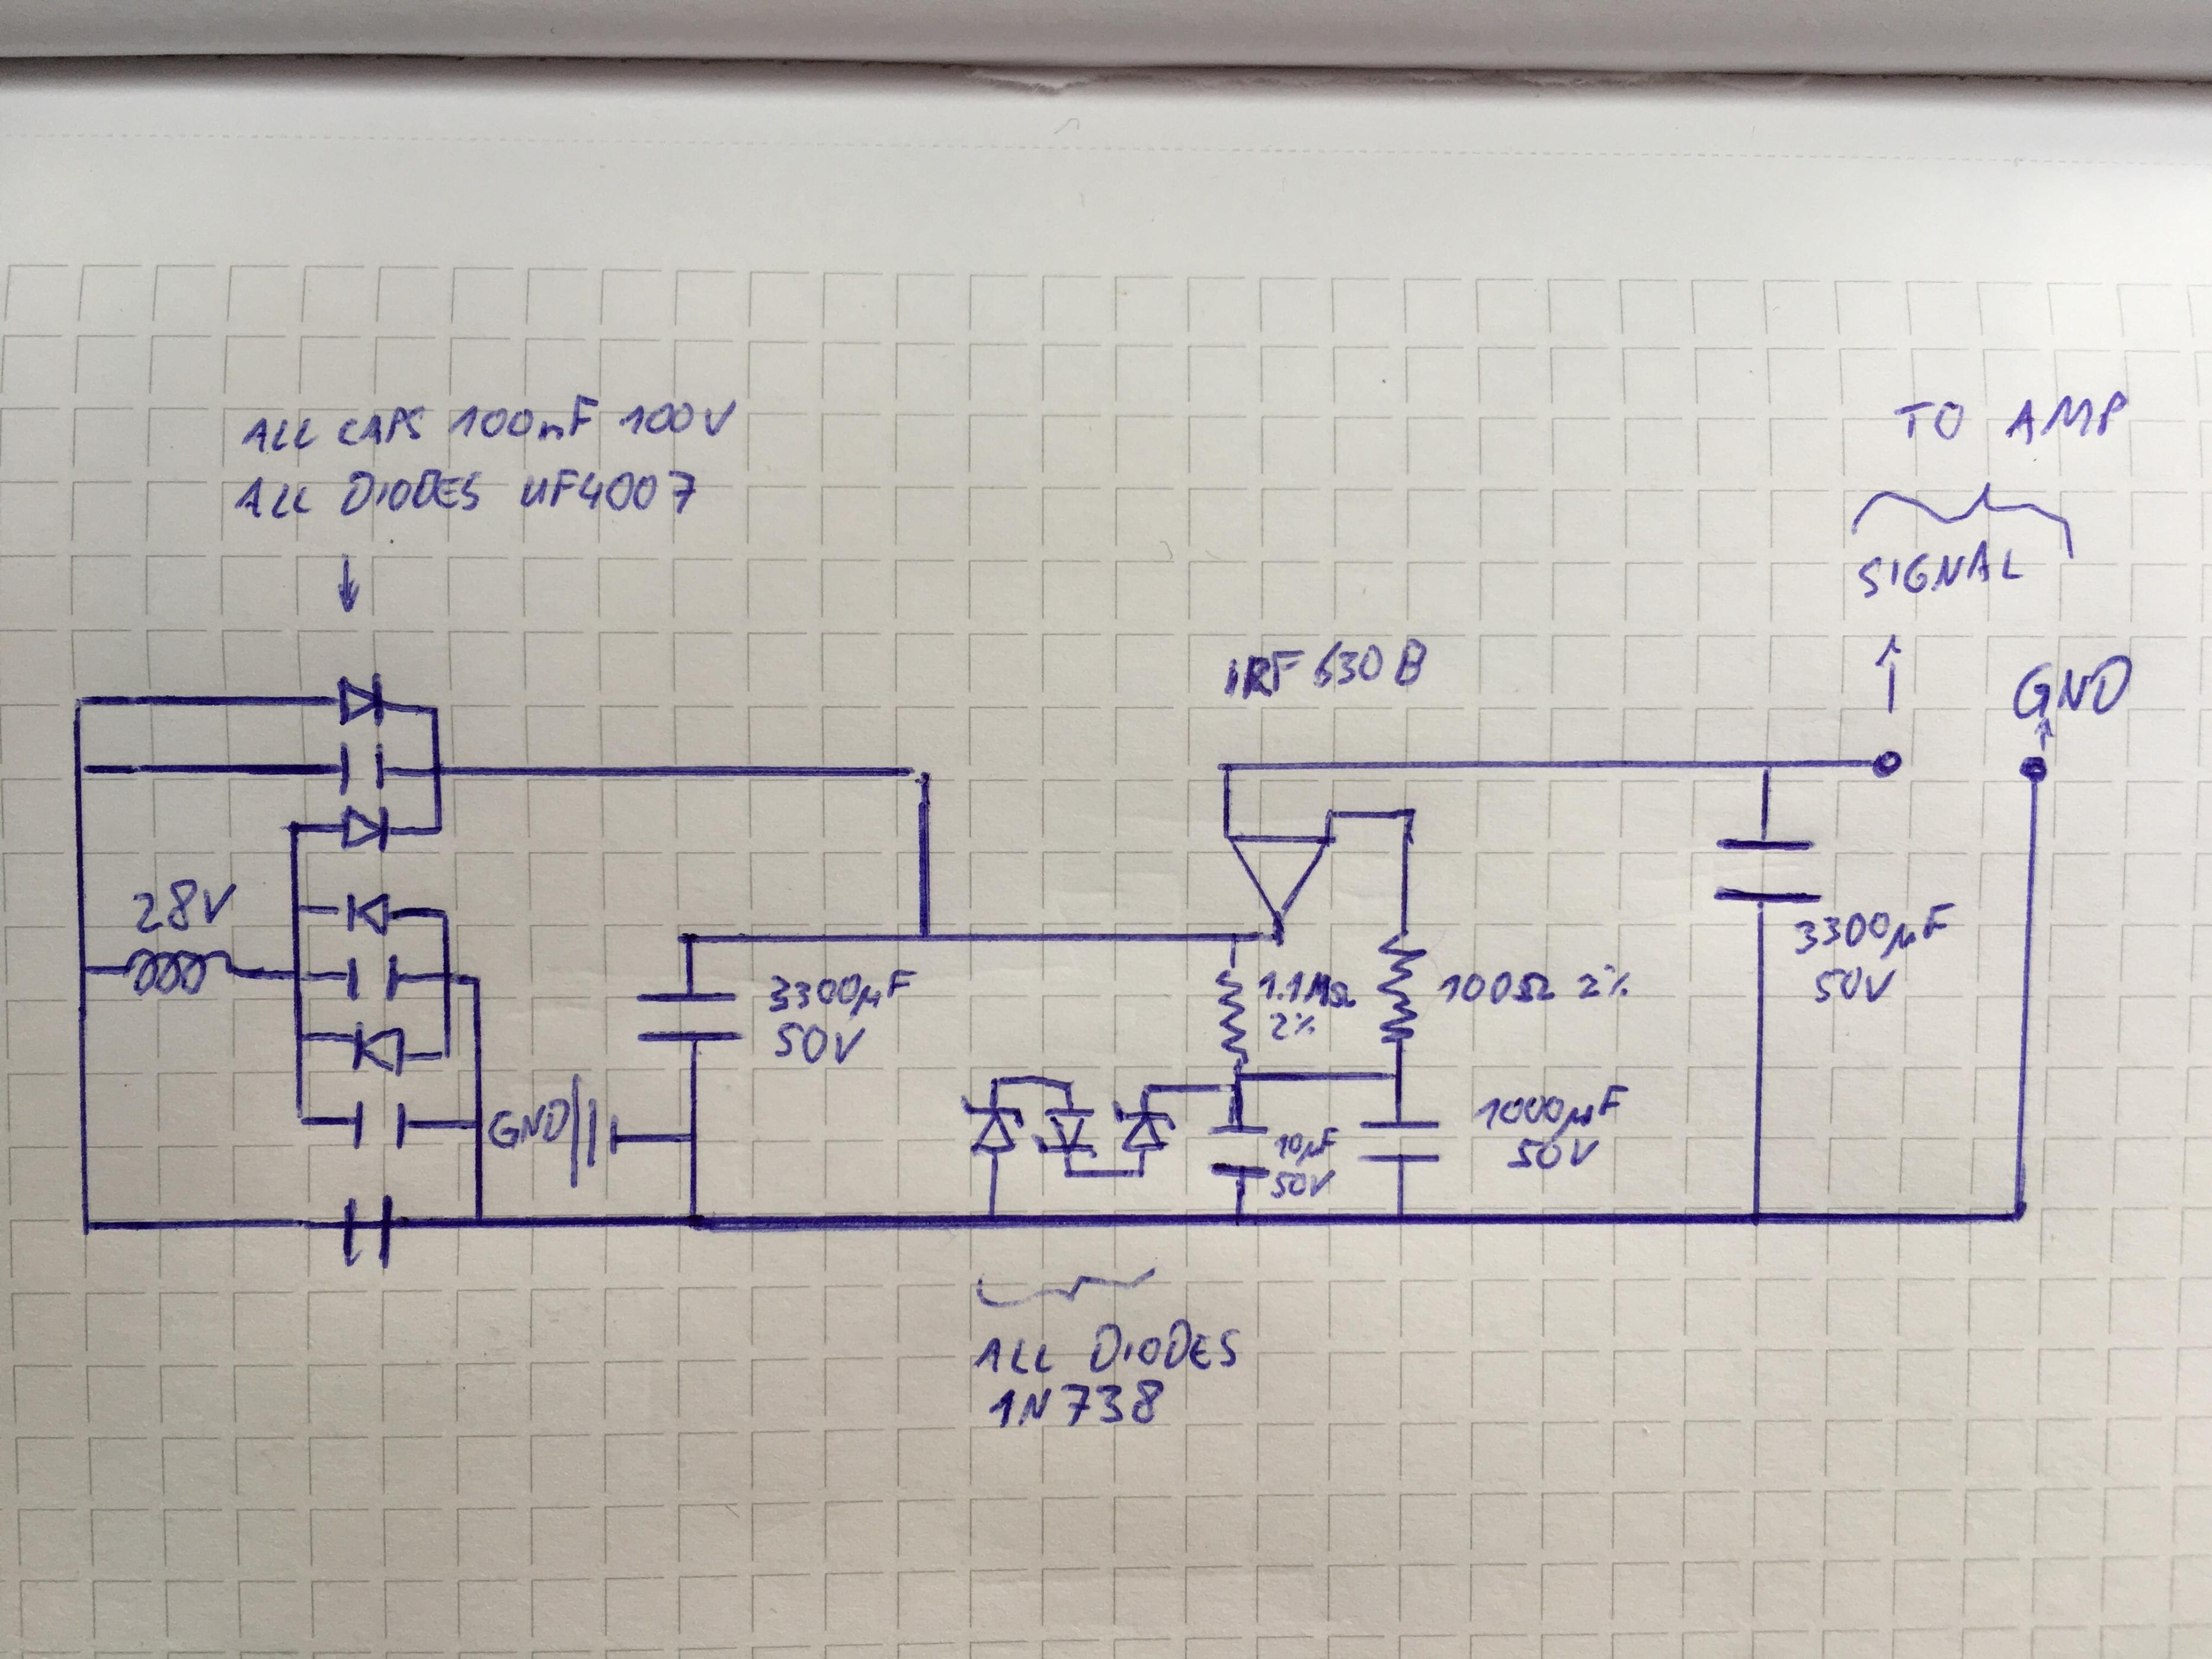 ALL CAPS 100nF 100V
ALL DIODES UF4007
TO AMP
SIGNAL
GND
IRF630B
28V
3300µF
50V
1.1MΩ
2%
100Ω 2%
3300µF
50V
GND
10µF
50V
1000µF
50V
ALL DIODES
1N738